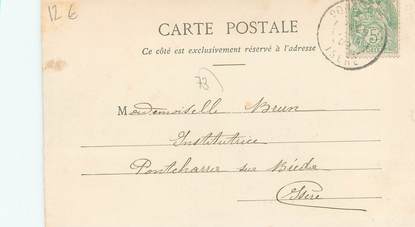 12 6
CARTE POSTALE
Ce côté est exclusivement réservé à l'adresse
73
Mademoiselle Brun
Institutrice
Pontcharra sur Bréda
Isère
ISÈRE
5